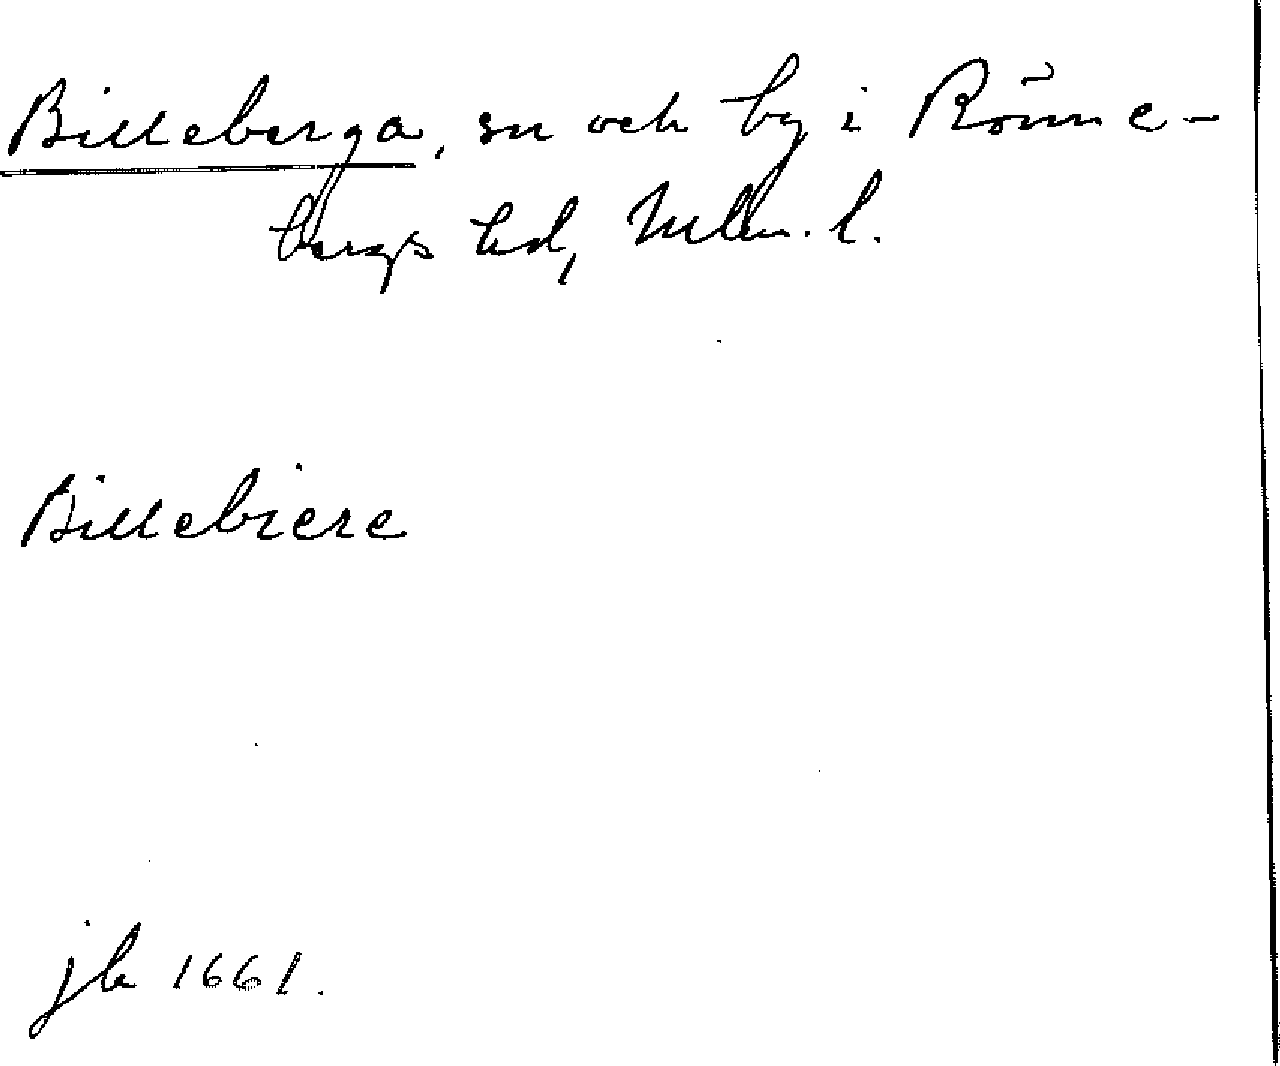 Billeberga, sn och by i Rönne-
bergs hd, Mlm. l.
Billebiere
jb 1661.